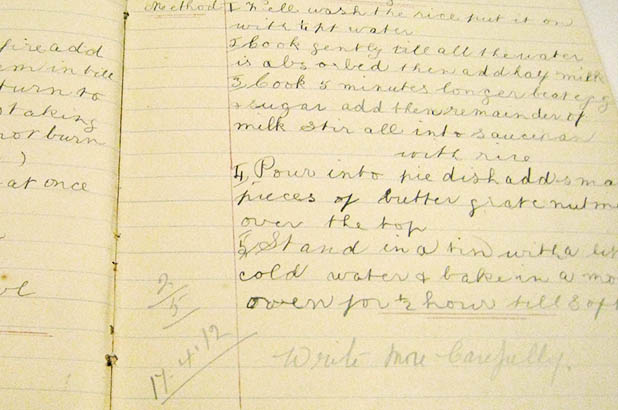 fire add
em in till
turn to
taking
not burn
)
at once
Method
1 Well wash the rice put it on
with ½ pt water
2 Cook gently till all the water
is absorbed then add half milk
3 Cook 5 minutes longer beat egg
& sugar add then remainder of
milk stir all into saucepan
with rice
4 Pour into pie dish add sma
pieces of butter grate nutme
over the top
5 Stand in a tin with a lit
cold water & bake in a mo
oven for ½ hour till soft
2/5
17.4.12
Write more Carefully.